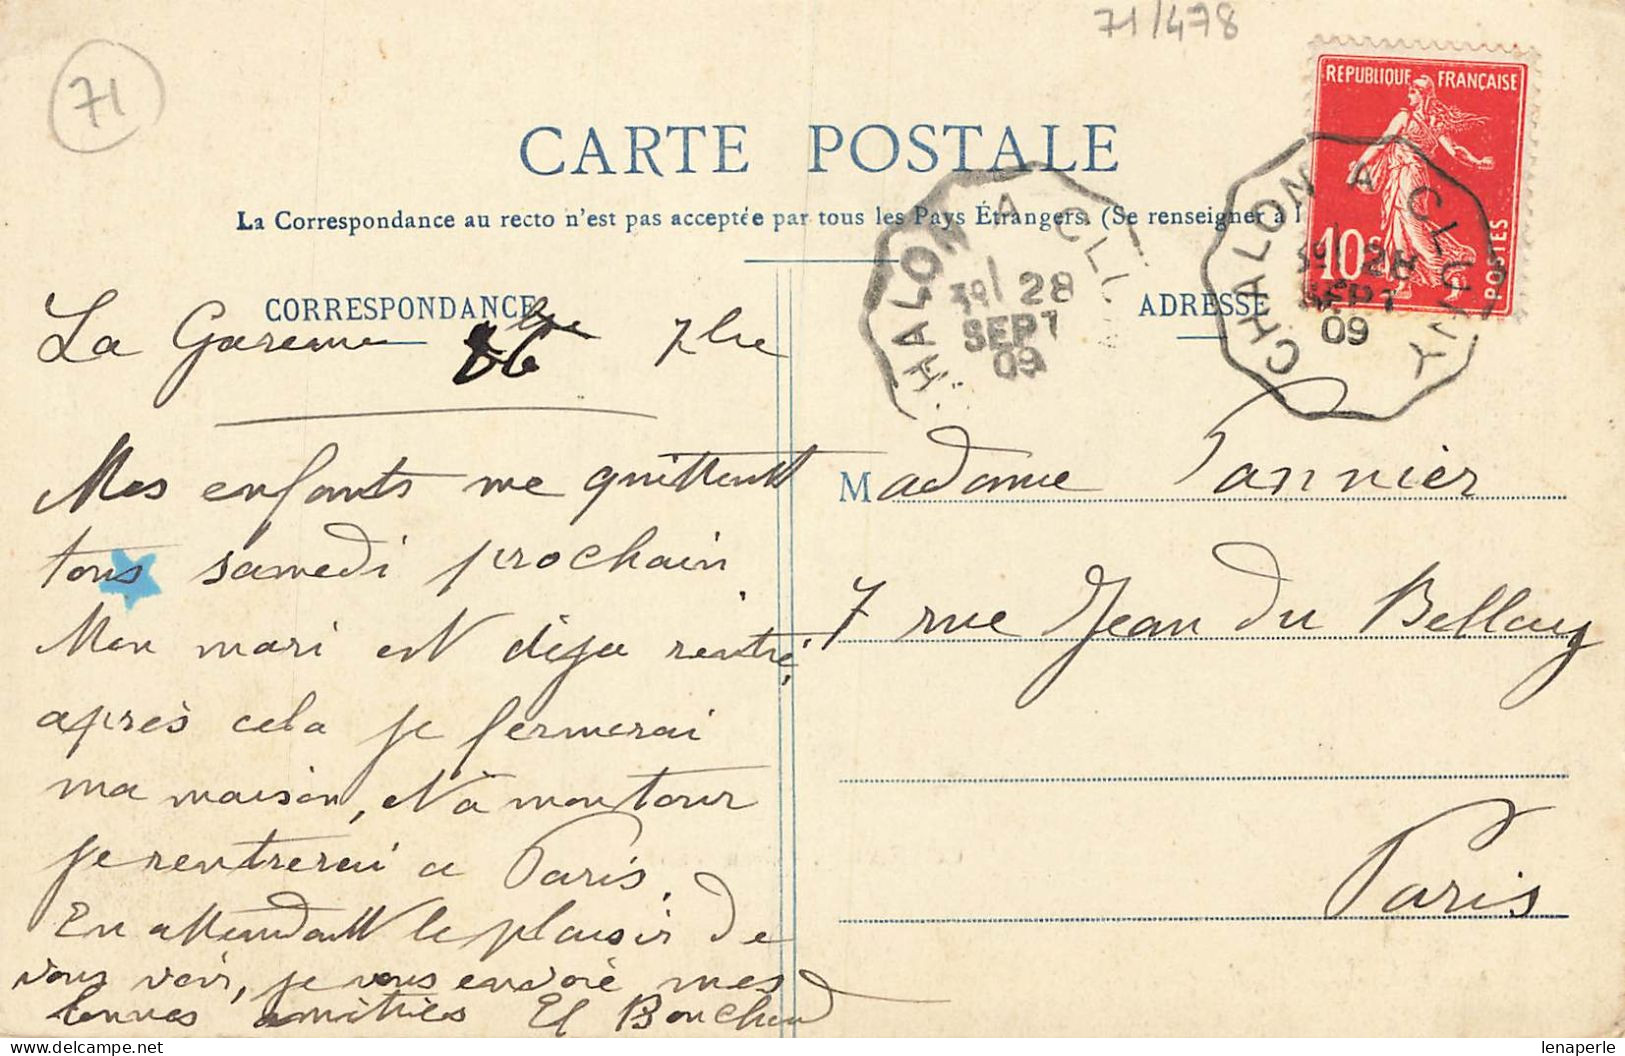 71/478
71
REPUBLIQUE FRANÇAISE
10c
POSTES
CARTE POSTALE
La Correspondance au recto n'est pas acceptée par tous les Pays Étrangers. (Se renseigner à l
CHALON A CLUNY
28
SEPT
09
HALON A CLU
28
SEPT
09
CORRESPONDANCE
ADRESSE
La Garenne 7bre
Mes enfants me quittent
tous samedi prochain
Mon mari est déja rentré,
après cela je fermerai
ma maison, et à mon tour
je rentrerai a Paris.
En attendant le plaisir de
vous voir, je vous envoie mes
bonnes amitiés El
Madame Pannier
7 rue Jean du Bellay
Paris
lenaperle